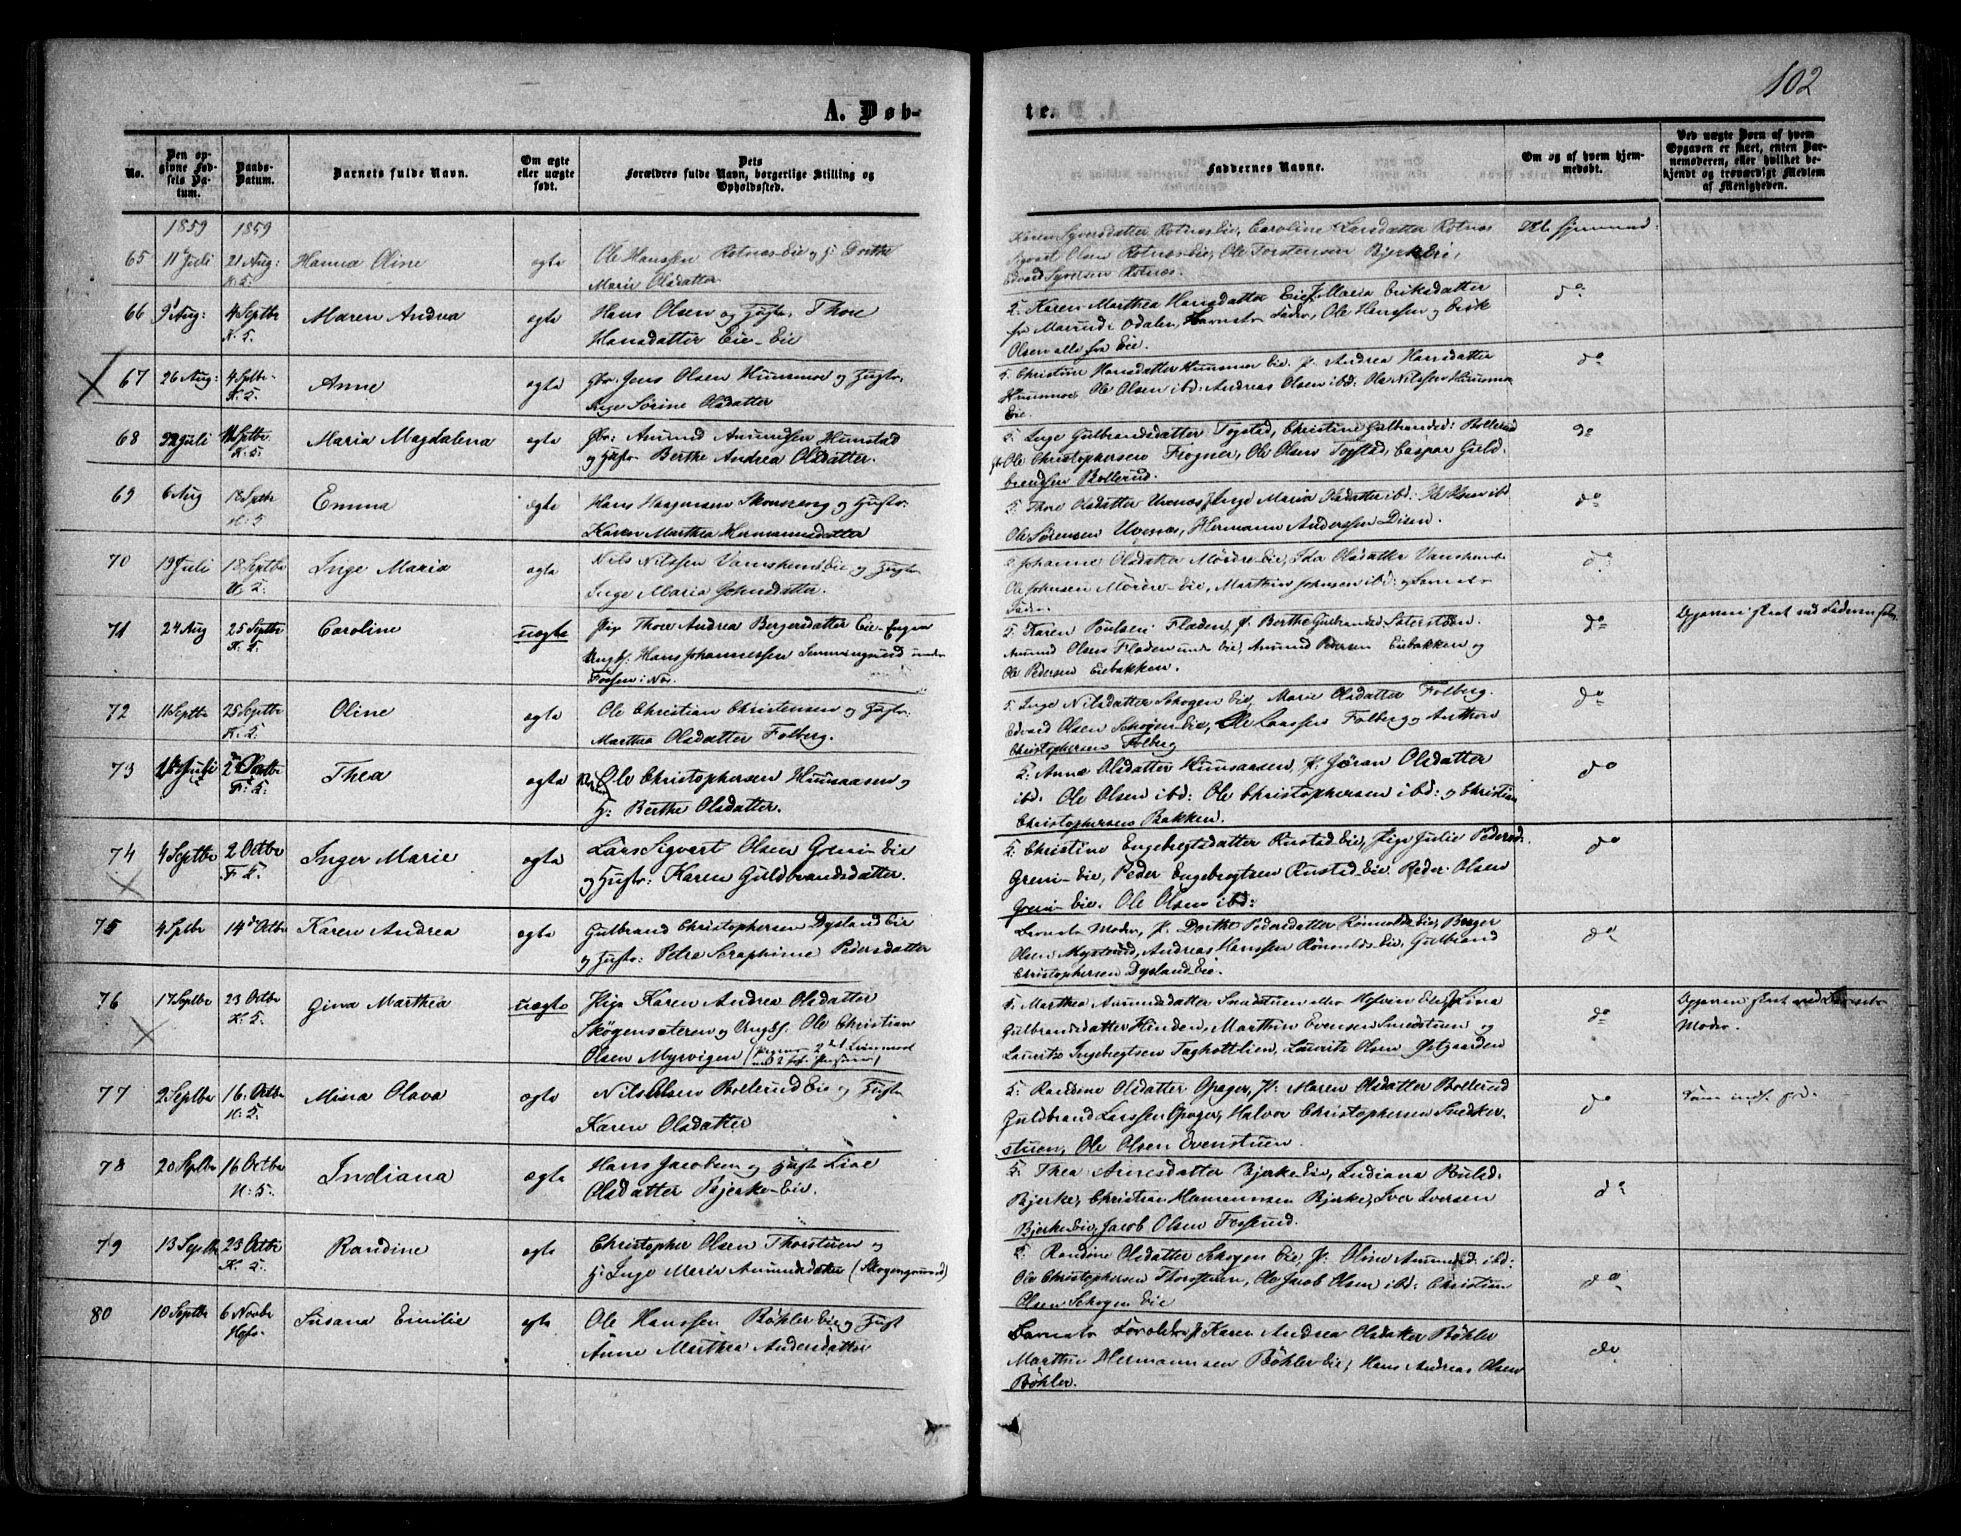 102
A. Døb-
te.
No.
Den op-
givne Fød-
sels Da-
tum.
Daabs-
Datum.
Barnets fulde Navn.
Om ægte
eller uægte
født.
Dets
Forældres fulde Navn, borgerlige Stilling og
Opholdssted.
Faddernes Navne.
Om og af hvem hjem-
medøbt.
Ved uægte Børn af hvem
Opgaven er skeet, enten Bar-
nemoderen, eller hvilket be-
kjendt og troværdigt Medlem
af Menigheden.
1859 1859
65 11 Juli 21 Aug: Hanna Oline ægte Ole Hanssen Rotnæs Eie og H: Dorthe
N. 5. Marie Olsdatter
Karen Syversdatter Rotnæs Eie, Caroline Larsdatter Rotnæs
Olsen Rotnæs Eie, Ole Torstensen Bjerke Eie,
Edvard Syversen Rotnæs.
66 9 Aug: 4 Septbr Maren Andrea ægte Hans Olsen og Hustr. Thore
K. 5. Hansdatter Eie-Eie
5. Karen Marthea Hansdatter Eie, P. Maria Eriksdatter
fra Odalen, Barnets Fader, Ole Hanssen og Erik
Olsen alle fra Eie.
do
67 26 Aug: 4 Septbr Anne ægte Gbr: Jens Olsen Hunsmoe og Hustr.
K. 5. Inge Sørine Olsdatter
5. Christine Hansdatter Hunsmoe Eie, P. Andrea Hansdatter
Hunsmoe, Ole Olsen ibd: Andreas Olsen ibd: Ole Nilssen Hunsmoe
Eie.
do
68 22 Juli 11 Septbr Maria Magdalena ægte Gbr: Amund Amundsen Hunstad
K. 5. og Hustr. Berthe Andrea Olsdatter.
5. Inge Gulbrandsdatter Togstad, Christine Gulbrandsd: Bollerud
Ole Christophersen Frogner, Ole Olsen Togstad, Caspar Guld-
brandsen Bollerud.
do
69 6 Aug 18 Septbr Emma ægte Hans Haagensen og Hustr:
N: 5 Karen Marthea Hermannsdatter
5. Thore Olsdatter Uvesnæs, P. Inge Maria Olsdatter ibd: Ole Olsen ibd
Ole Sørensen Uvesnæs, Hermann Anderssen Disen.
do
70 19 Juli 18 Septbr Inge Maria ægte Nils Nilssen Eie og Hustr
N. 5. Inge Maria Johnsdatter.
Johanne Olsdatter Mørdre-Eie, Ida Olsdatter
Ole Johnsen Mørdre-Eie, Marthin Johnsen ibd: og Barnets
Fader.
do
71 24 Aug 25 Septbr Caroline uægte Pige Thore Andrea Bergersdatter Eie-Engen
K. 5. Ungkf. Hans Johannessen under
Fossen i Næs.
5. Karen Poulsen Fladen, P. Berthe Gulbrandsd. Sæterstøen.
Amund Olsen Fladen under Eie, Amund Pedersen Eiebakken og
Ole Pedersen Eiebakken.
do
72 11 Septbr 25 Septbr Oline ægte Ole Christian Christensen og Hustr.
K. 5. Marthea Olsdatter Folberg.
5. Inge Nilsdatter Skogen Eie, Marie Olsdatter Folberg.
Edvard Olsen Skogen Eie, Ole Larssen Folberg og Anthon
Christophersen Folberg
do
73 Juli 2 Octbr Thea ægte Ole Christophersen Hunsaasen og
F: 5. H: Berthe Olsdatter.
5: Anne Olsdatter Hunsaasen, P: Jøran Olsdatter
ibd. Ole Olsen ibd: Ole Christophersen ibd: og Christian
Christophersen Bakken.
do
74 4 Septbr 2 Octbr Inger Marie ægte Lars Sigvart Olsen Greni Eie
F. 5. og Hustr: Karen Guldbrandsdatter.
5: Christine Engebregtsdatter Rustad Eie, Pige Julie Pedersd.
Greni-Eie, Peder Engebregtsen Rustad-Eie. Peder Olsen
Greni-Eie. Ole Olsen ibd:
do
75 4 Septbr 14d Octbr Karen Andrea ægte Gulbrand Christophersen Dysland Eie
og Hustr: Petra Seraphine Pedersdatter
Barnets Moder, P. Dorthe Pedersdatter Eie, Berger
Olsen, Andreas Hanssen Eie, Gulbrand
Christophersen Dysland Eie.
do
76 17 Septbr 23 Octbr Gina Marthea uægte Pige Karen Andrea Olsdatter
K: 5. Skogensæteren og Ungkf. Ole Christian
Olsen Myrvigen
5. Marthea Amundsdatter Smedstuen, P. Lina
Gulbrandsdatter Hinden, Marthin Evensen Smedstuen og
Lauritz Ingebregtsen, Lauritz Olsen Østgaarden
do
Moder.
77 2 Septbr 16. Octbr Mina Olava ægte Nils Olsen Bollerud Eie og Hustr
N: 5. Karen Olsdatter
5: Randine Olsdatter Opager, P: Maren Olsdatter Bollerud
Guldbrand Larssen Opager, Halvor Christophersen Snekker-
stuen, Ole Olsen Evenstuen.
do
78 20 Septbr 16 Octbr Indiana ægte Hans Jacobsen og Hust Lise
N: 5. Olsdatter Bjerke-Eie.
5: Thea Arnesdatter Bjerke Eie, Indiana
Bjerke, Christian Hansen Bjerke, Iver Iversen
Bjerke Eie, Jacob Olsen Fosserud.
do
79 13 Septbr 23 Octbr Randine ægte Christopher Olsen Thorstuen og
K. 5. H: Inge Marie Amundsdatter
5. Randine Olsdatter Skogen Eie, P. Oline Amundsd. ibd:
Ole Christophersen Thorstuen, Ole Jacob Olsen ibd: Christian
Olsen Skogen Eie
do
80 10 Septbr 6 Novbr Susana Emilie ægte Ole Hanssen Bøhler Eie og Hust
Anne Marthea Andersdatter
Barnets Forældre, P. Karen Andrea Olsdatter Bøhler
Marthin Hermannsen Bøhler Eie, Hans Andreas Olsen
Bøhler.
do